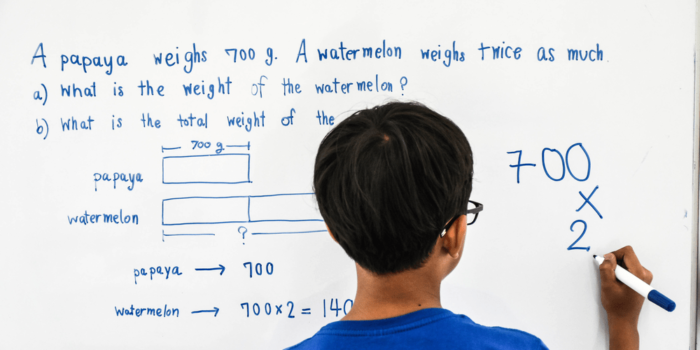 A papaya weighs 700 g. A watermelon weighs twice as much
a) What is the weight of the watermelon?
b) What is the total weight of the
700 g
papaya
watermelon
?
papaya → 700
watermelon → 700x2 = 140
700
x
2